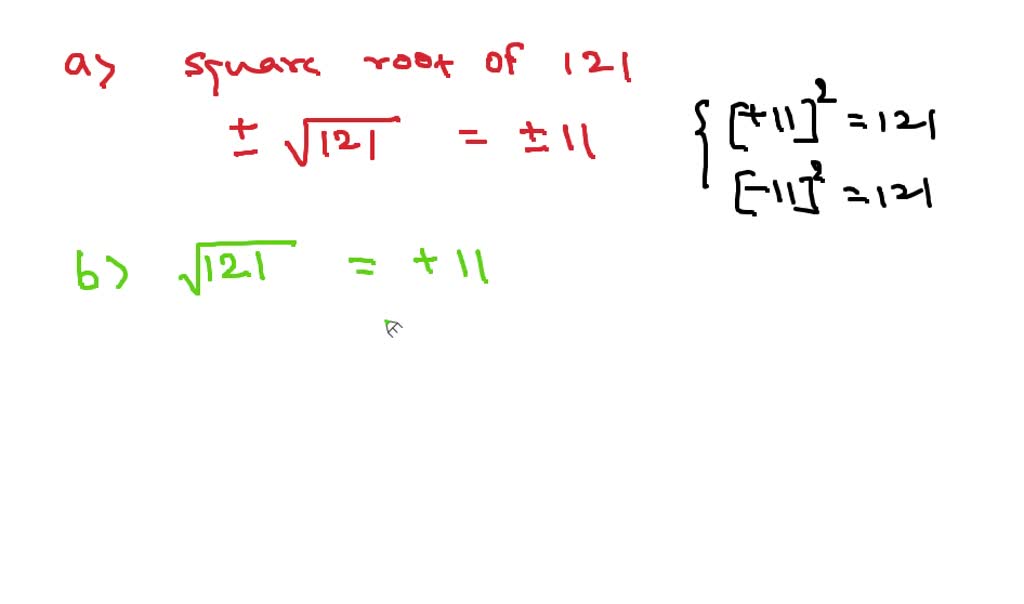 a) square root of 121
± √121 = ±11
{ [+11]² = 121
[-11]² = 121
b) √121 = +11